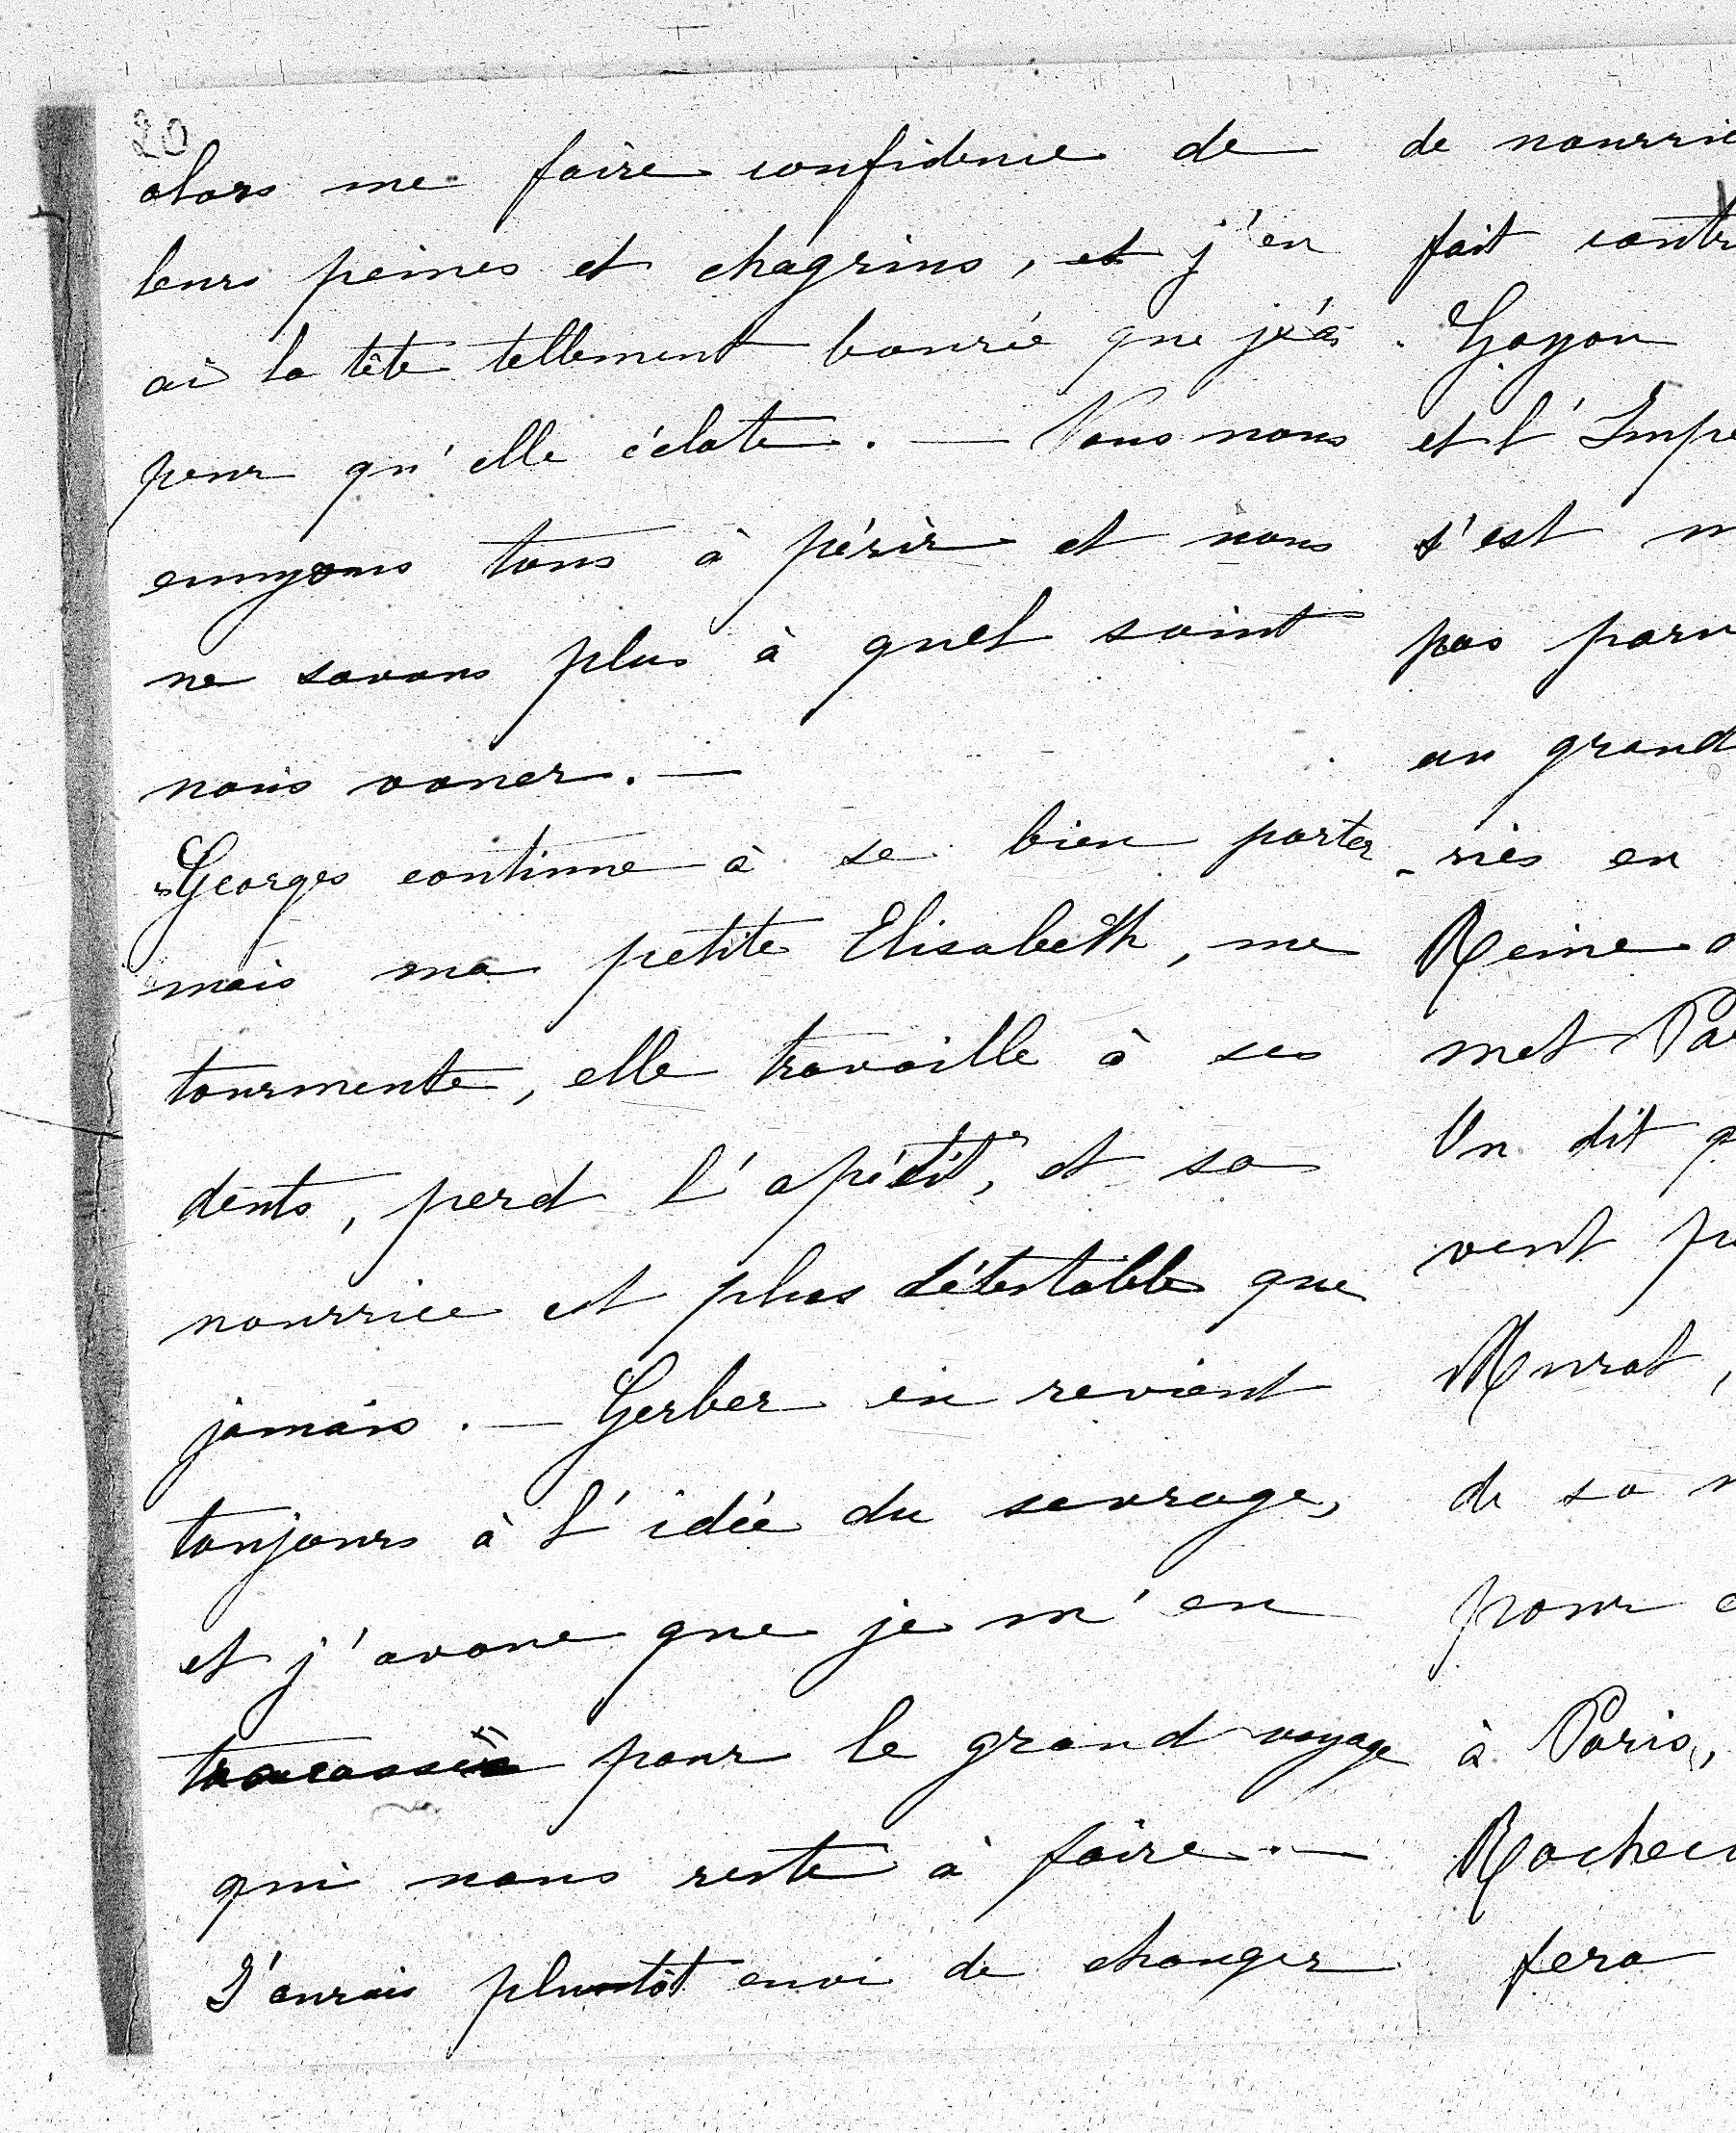 20
alors me faire confidence de
leurs peines et chagrins, et j'en
ai la tête tellement bourrée que j'ai
peur qu'elle éclate. — Nous nous
ennuyons tous à périr et nous
ne savons plus à quel saint
nous vouer. —
Georges continue à se bien porter
mais ma petite Elisabeth, me
tourmente, elle travaille à ses
dents, perd l'apétit, et sa
nourrice est plus détestable que
jamais. — Gerber en revient
toujours à l'idée du sevrage,
et j'avoue que je m'en
tracasse pour le grand voyage
qui nous reste à faire. —
J'aurais plutôt envi de changer
de nourric
fait contr
Goyon
et l'Impé
s'est m
pas parv
un grand
-riés en
Reine
met Par
On dit q
vent
Murat,
de sa
pour
à Paris,
Rochec
fera